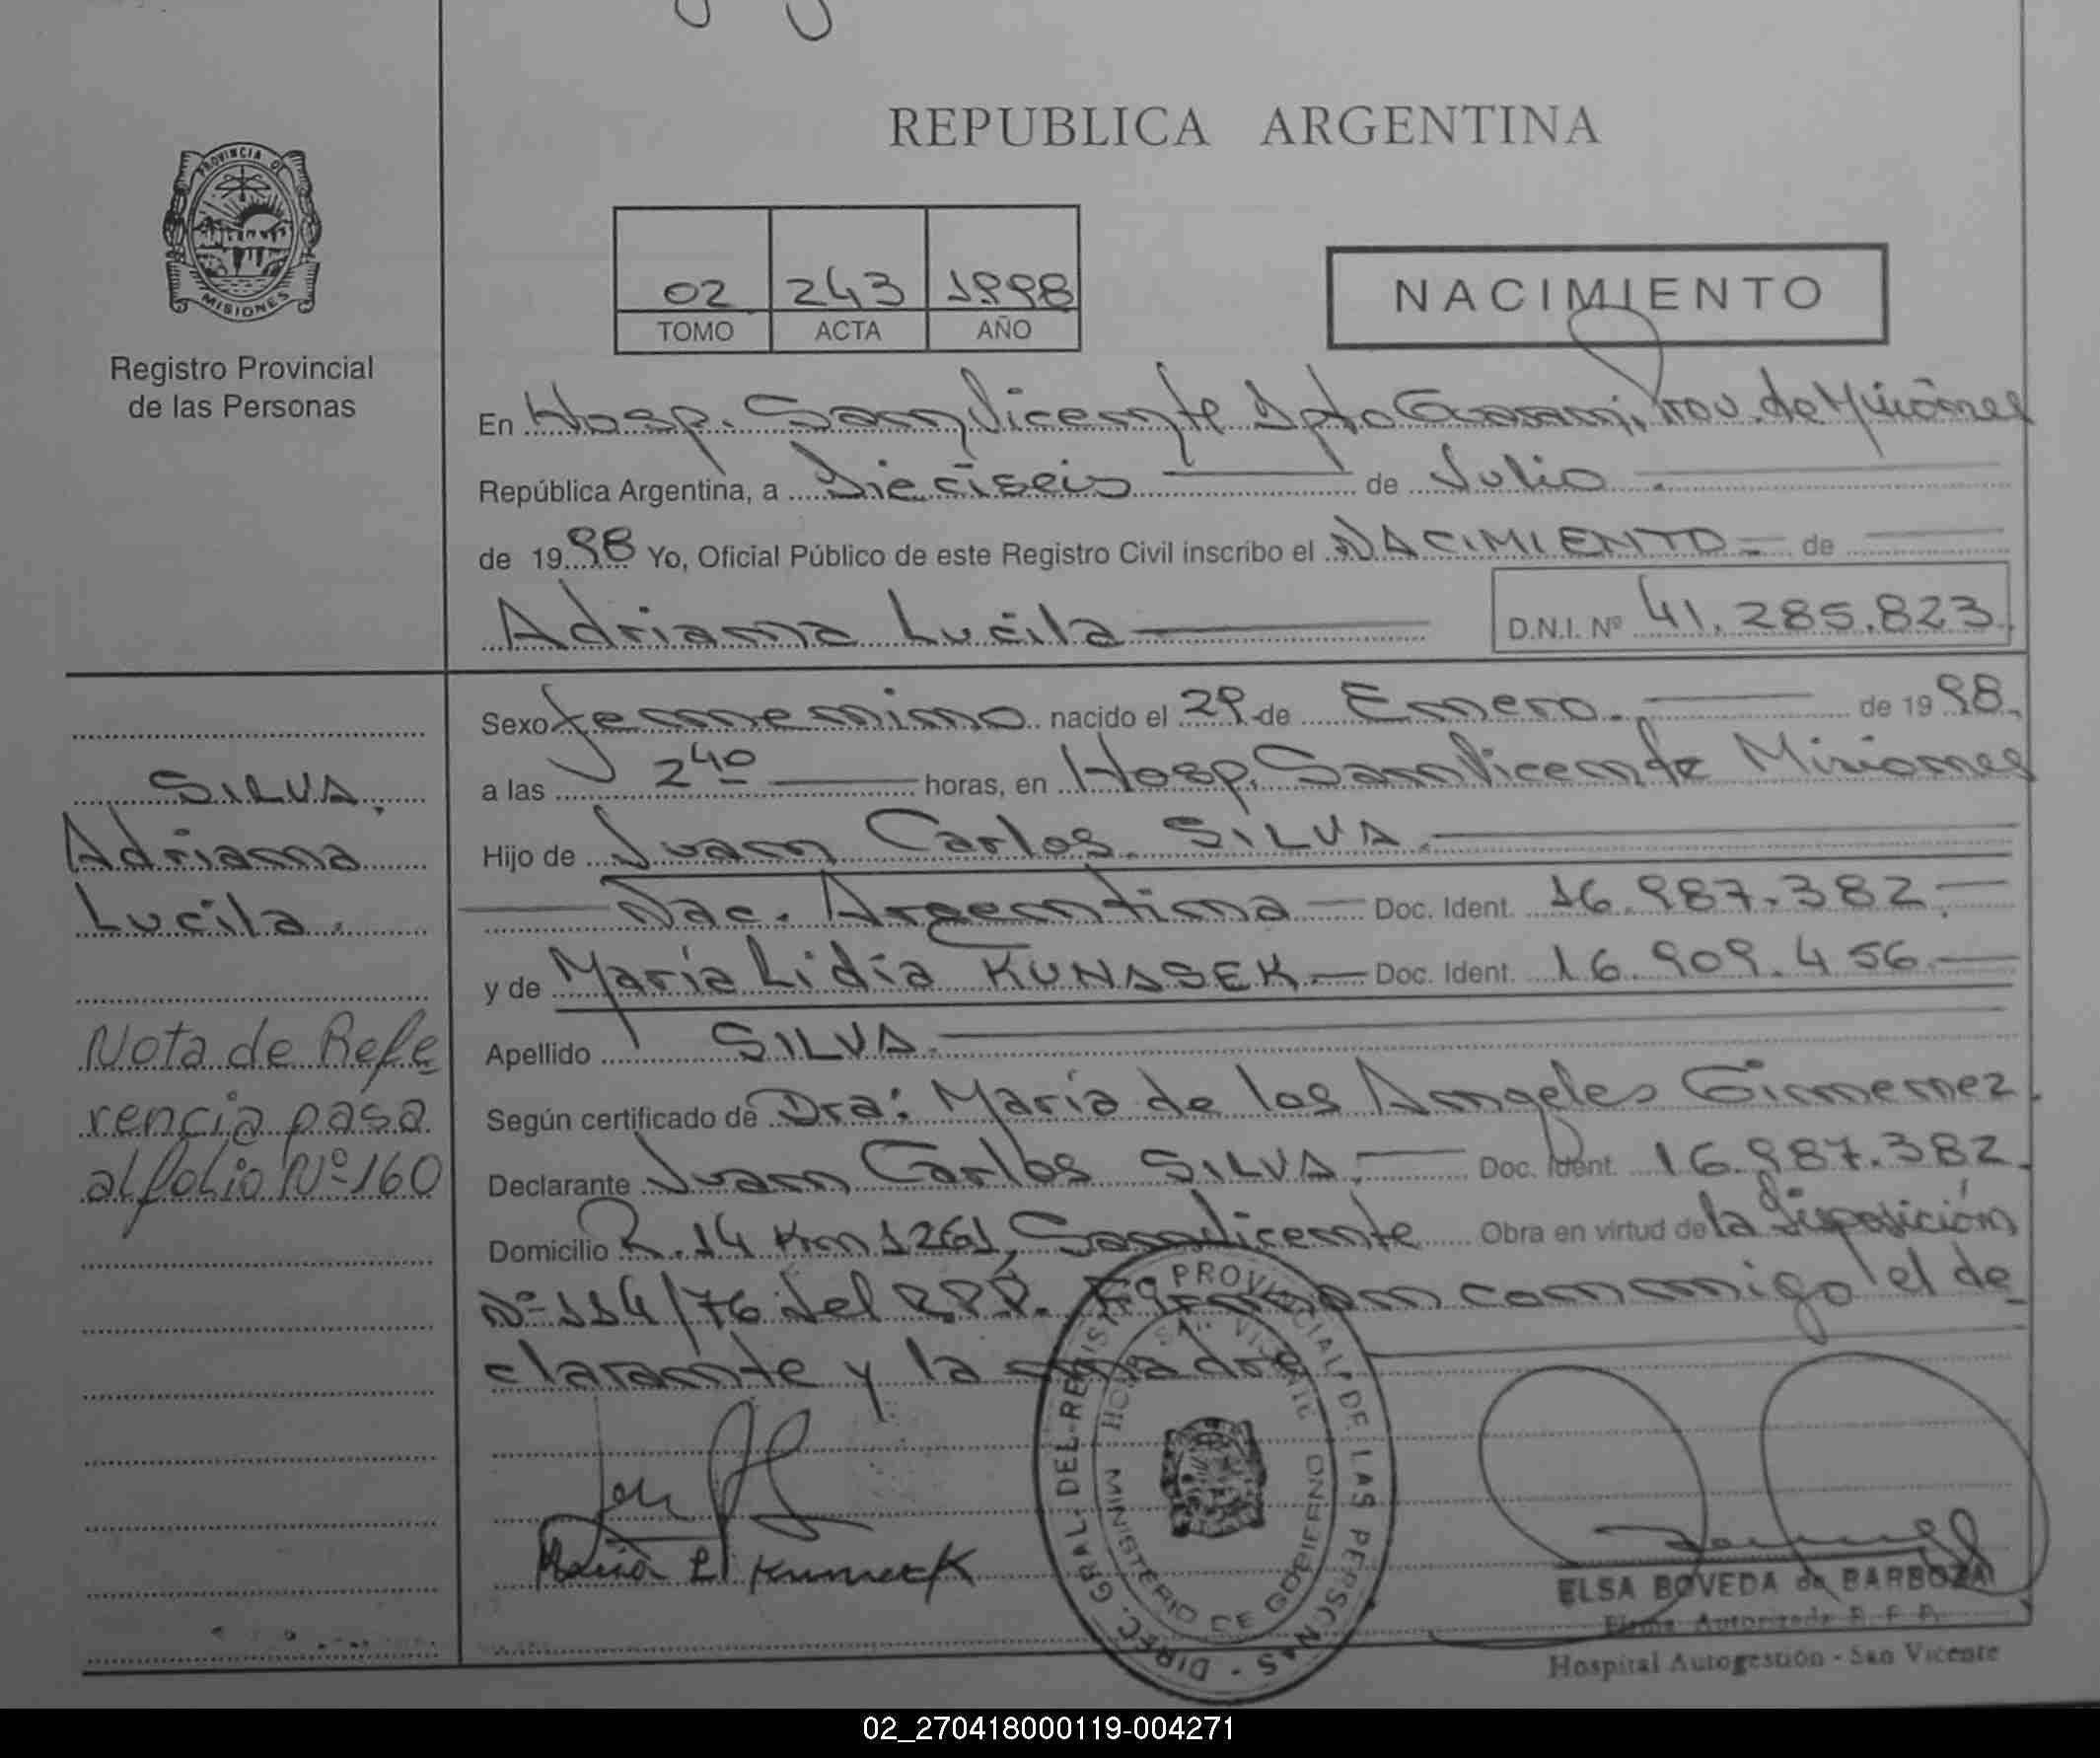 REPUBLICA ARGENTINA
PROVINCIA DE
MISIONES
Registro Provincial
de las Personas
02 243 1998
TOMO ACTA AÑO
NACIMIENTO
En Hosp. San Vicente Dpto Guarani, Prov. de Misiones
República Argentina, a Dieciseis de Julio.
de 1998 Yo, Oficial Público de este Registro Civil inscribo el NACIMIENTO de
Adriana Lucila
D.N.I. Nº 41.285.823
Sexo femenino nacido el 29 de Enero. de 1998.
a las 2 40 horas, en Hosp. San Vicente Misiones
Hijo de Juan Carlos SILVA.
Nac. Argentina Doc. Ident. 16.987.382.
y de María Lidia KUNASEK. Doc. Ident. 16.909.456
Apellido SILVA.
Según certificado de Dra: María de los Angeles Gimenez.
Declarante Juan Carlos SILVA. Doc. Ident. 16.987.382.
Domicilio R. 14 Km 1261, San Vicente Obra en virtud de la Disposición
Nº 114/76 del RPP. Firman conmigo el de
clarante y la madre
SILVA.
Adriana
Lucila.
Nota de Refe
rencia pasa
al folio Nº 160
María L Kunasek
DIREC. GRAL. DEL REGISTRO PROVINCIAL DE LAS PERSONAS
HOSP. SAN VICENTE
MINISTERIO DE GOBIERNO
ELSA BOVEDA de BARBOZA
Firma Autorizada R. P. P.
Hospital Autogestión - San Vicente
02_270418000119-004271